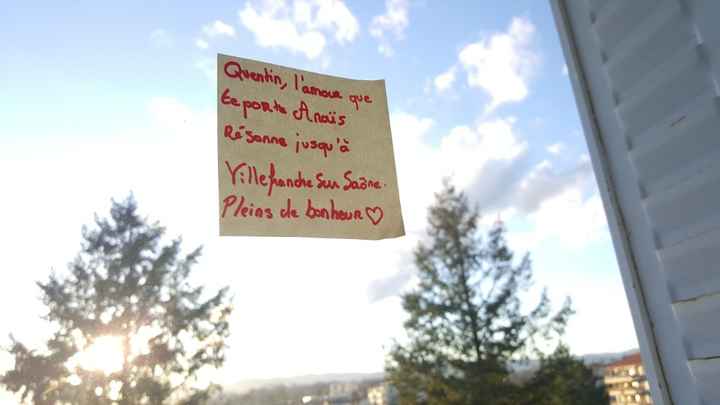 Quentin, l'amour que
te porte Anaïs
Résonne jusqu'à
Villefranche Sur Saône.
Pleins de bonheur ♡